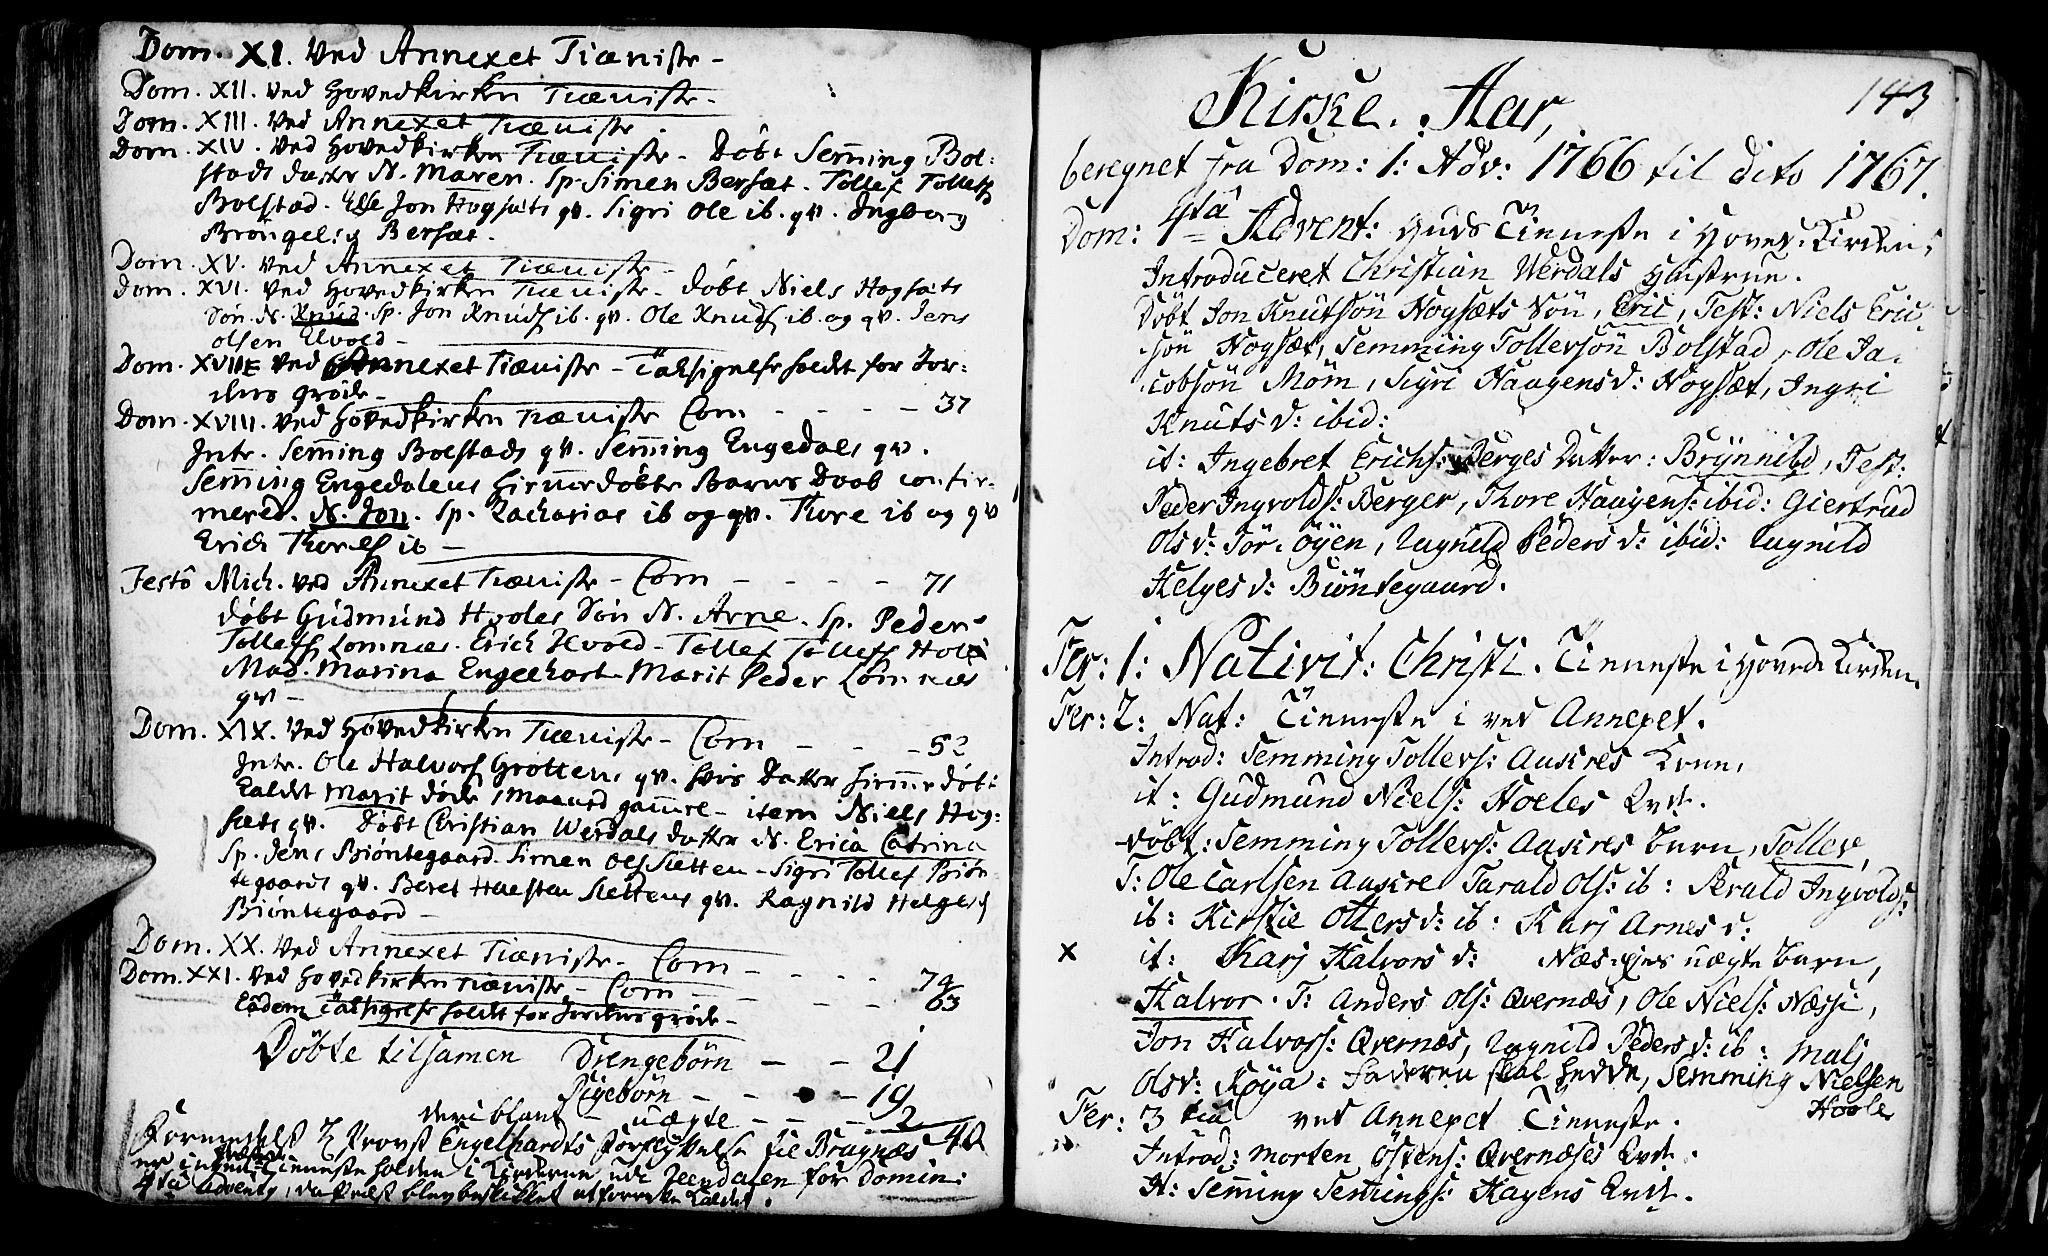 Dom. XI. Ved Annexet Tiæniste –
Dom. XII. Ved Hovedkirken Tiæniste –
Dom. XIII. Ved Annexet Tiæniste.
Dom. XIV. Ved Hovedkirken Tiæniste – Döbt Sem̄ing Bol:
stads datter N. Maren. Sp. Simen Bersæt. Tollef Tollefs
Bolstad. Else Jon Hogsæts qv. Sigri Ole ib. qv. Ingborg
Bröngels: Bersæt.
Dom. XV. Ved Annexet Tiæniste –
Dom. XVI. Ved Hovedkirken Tiæniste – döbt Niels Hogsæts
Sön. N. Knud. Sp. Jon Knuds ib. qv. Ole Knuds ib. og qv. Jens
olsen Elvold –
Dom. XVII Ved Annexet Tiæniste – Taksigelse holdt for Jor:
dens gröde –
Dom. XVIII. Ved Hovedkirken Tiæniste Com – – – – 37
Intr. Sem̄ing Bolstads qv. Sem̄ing Engedals qv.
Sem̄ing Engedalens hiem̄edöbte Barns Daab confir:
mered. N. Jon. Sp. Zacharias ib og qv. Thore ib og qv
Erich Thores ib –
Festo Mich. ved Annexet Tiæniste – Com – – – – 71
döbt Gudmund Hooles Sön N. Arne. Sp. Peder
Tollefs Lomnæs. Erich Elvold – Tollef Tollefs Hole
Mad. Marina Engelhart Marit Peder Lomnæs
qv –
Dom. XIX. Ved Hovedkirken Tiæniste – Com – – – 52
Intr. Ole Halvors Gröttens qv. hvis datter hiem̄edöbt
kaldet Marit döde 1 Maaned gam̄el – item Niels Hog:
sæts qv. Döbt Christian Werdals datter N. Erica Catrina
Sp. Jens Biöntegaard. Simen Ols Sletten – Sigri Tollef Biön
tegaards qv. Beret Halsten Slettens qv. Ragnild Helges
Biöntegaard –
Dom. XX. Ved Annexet Tiæniste – Com – – – – 74
Dom. XXI. Ved Hovedkirken Tiæniste – Com – – – 63
Eodem Taksigelse holdt for Jordens gröde –
Döbte tilsamen Drengebörn – – 21
Pigebörn – – – 19
deriblant – uægte – – – 2
Formedelst H. Provst Engelhardts forflyttelse til Bragnæs 40
er ingen Tienneste holden i Kirkerne udi Reendalen for Domin:
4ta Adventy, da Præst blev beskikket at forrette Kaldet.

143
Kirke. Aar,
beregnet fra Dom: 1: Adv: 1766 til dito 1767.
Dom: 4ta Advent: Guds Tienneste i Hoved-Kirken,
Introduceret Christian Werdals Hustrue.
Döbt Jon Knutsön Hogsæts Sön, Eric, Test: Niels Eric
sön Hogsæt, Semming Tollefsön Bolstad, Ole Ja-
cobsön Möm, Sigri Haagensd: Hogsæt, Ingri
Knutsd: ibid:
it: Ingebret Erichs: Berges datter: Brynnild, Test:
Peder Ingvolds: Berger, Thore Haagens: ibid: Giertrud
Olsd: Tör-öyen, Ragnild Pedersd: ibid: Ragnild
Helgesd: Biöntegaard.
Fer: 1: Nativit: Christi. Tienneste i Hoved Kirken.
Fer: 2: Nat: Tienneste i ved Annexet.
Introd: Semming Tollefs: Aakres Kone,
it: Gudmund Niels: Hoeles Qvd.
döbt: Semming Tollefs: Aakres barn, Tollev,
T: Ole Carlsen Aakre Tarald Ols: ib: Terald Ingvolds:
ib: Kirstie Ottersd: ib: Karj Arnesd:
x it: Karj Halvorsd: Næs-ejes uægte barn,
Halvor. T: Anders Ols: Qvernæs, Ole Niels: Næsse,
Jon Halvors: Qvernæs, Ragnild Pedersd: ib: Malj
Olsd: Röya: Faderen skal hedde, Semming Nielsen
Hoole
Fer: 3tia ved Annexet Tienneste.
Introd: Morten Östens: Qvernæses Qvd.
It: Sem̄ing Sem̄ings: Hagens Qvd.